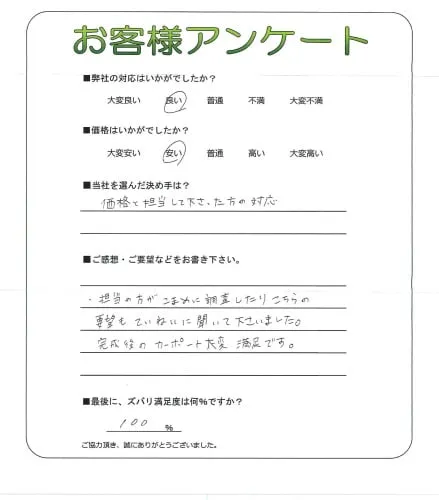 お客様アンケート
■弊社の対応はいかがでしたか?
大変良い 良い 普通 不満 大変不満
■価格はいかがでしたか?
大変安い 安い 普通 高い 大変高い
■当社を選んだ決め手は?
価格と担当して下さった方の対応
■ご感想・ご要望などをお書き下さい。
・担当の方がこまめに調査したりこちらの
要望もていねいに聞いて下さいました。
完成後のカーポート大変満足です。
■最後に、ズバリ満足度は何%ですか?
100 %
ご協力頂き、誠にありがとうございました。